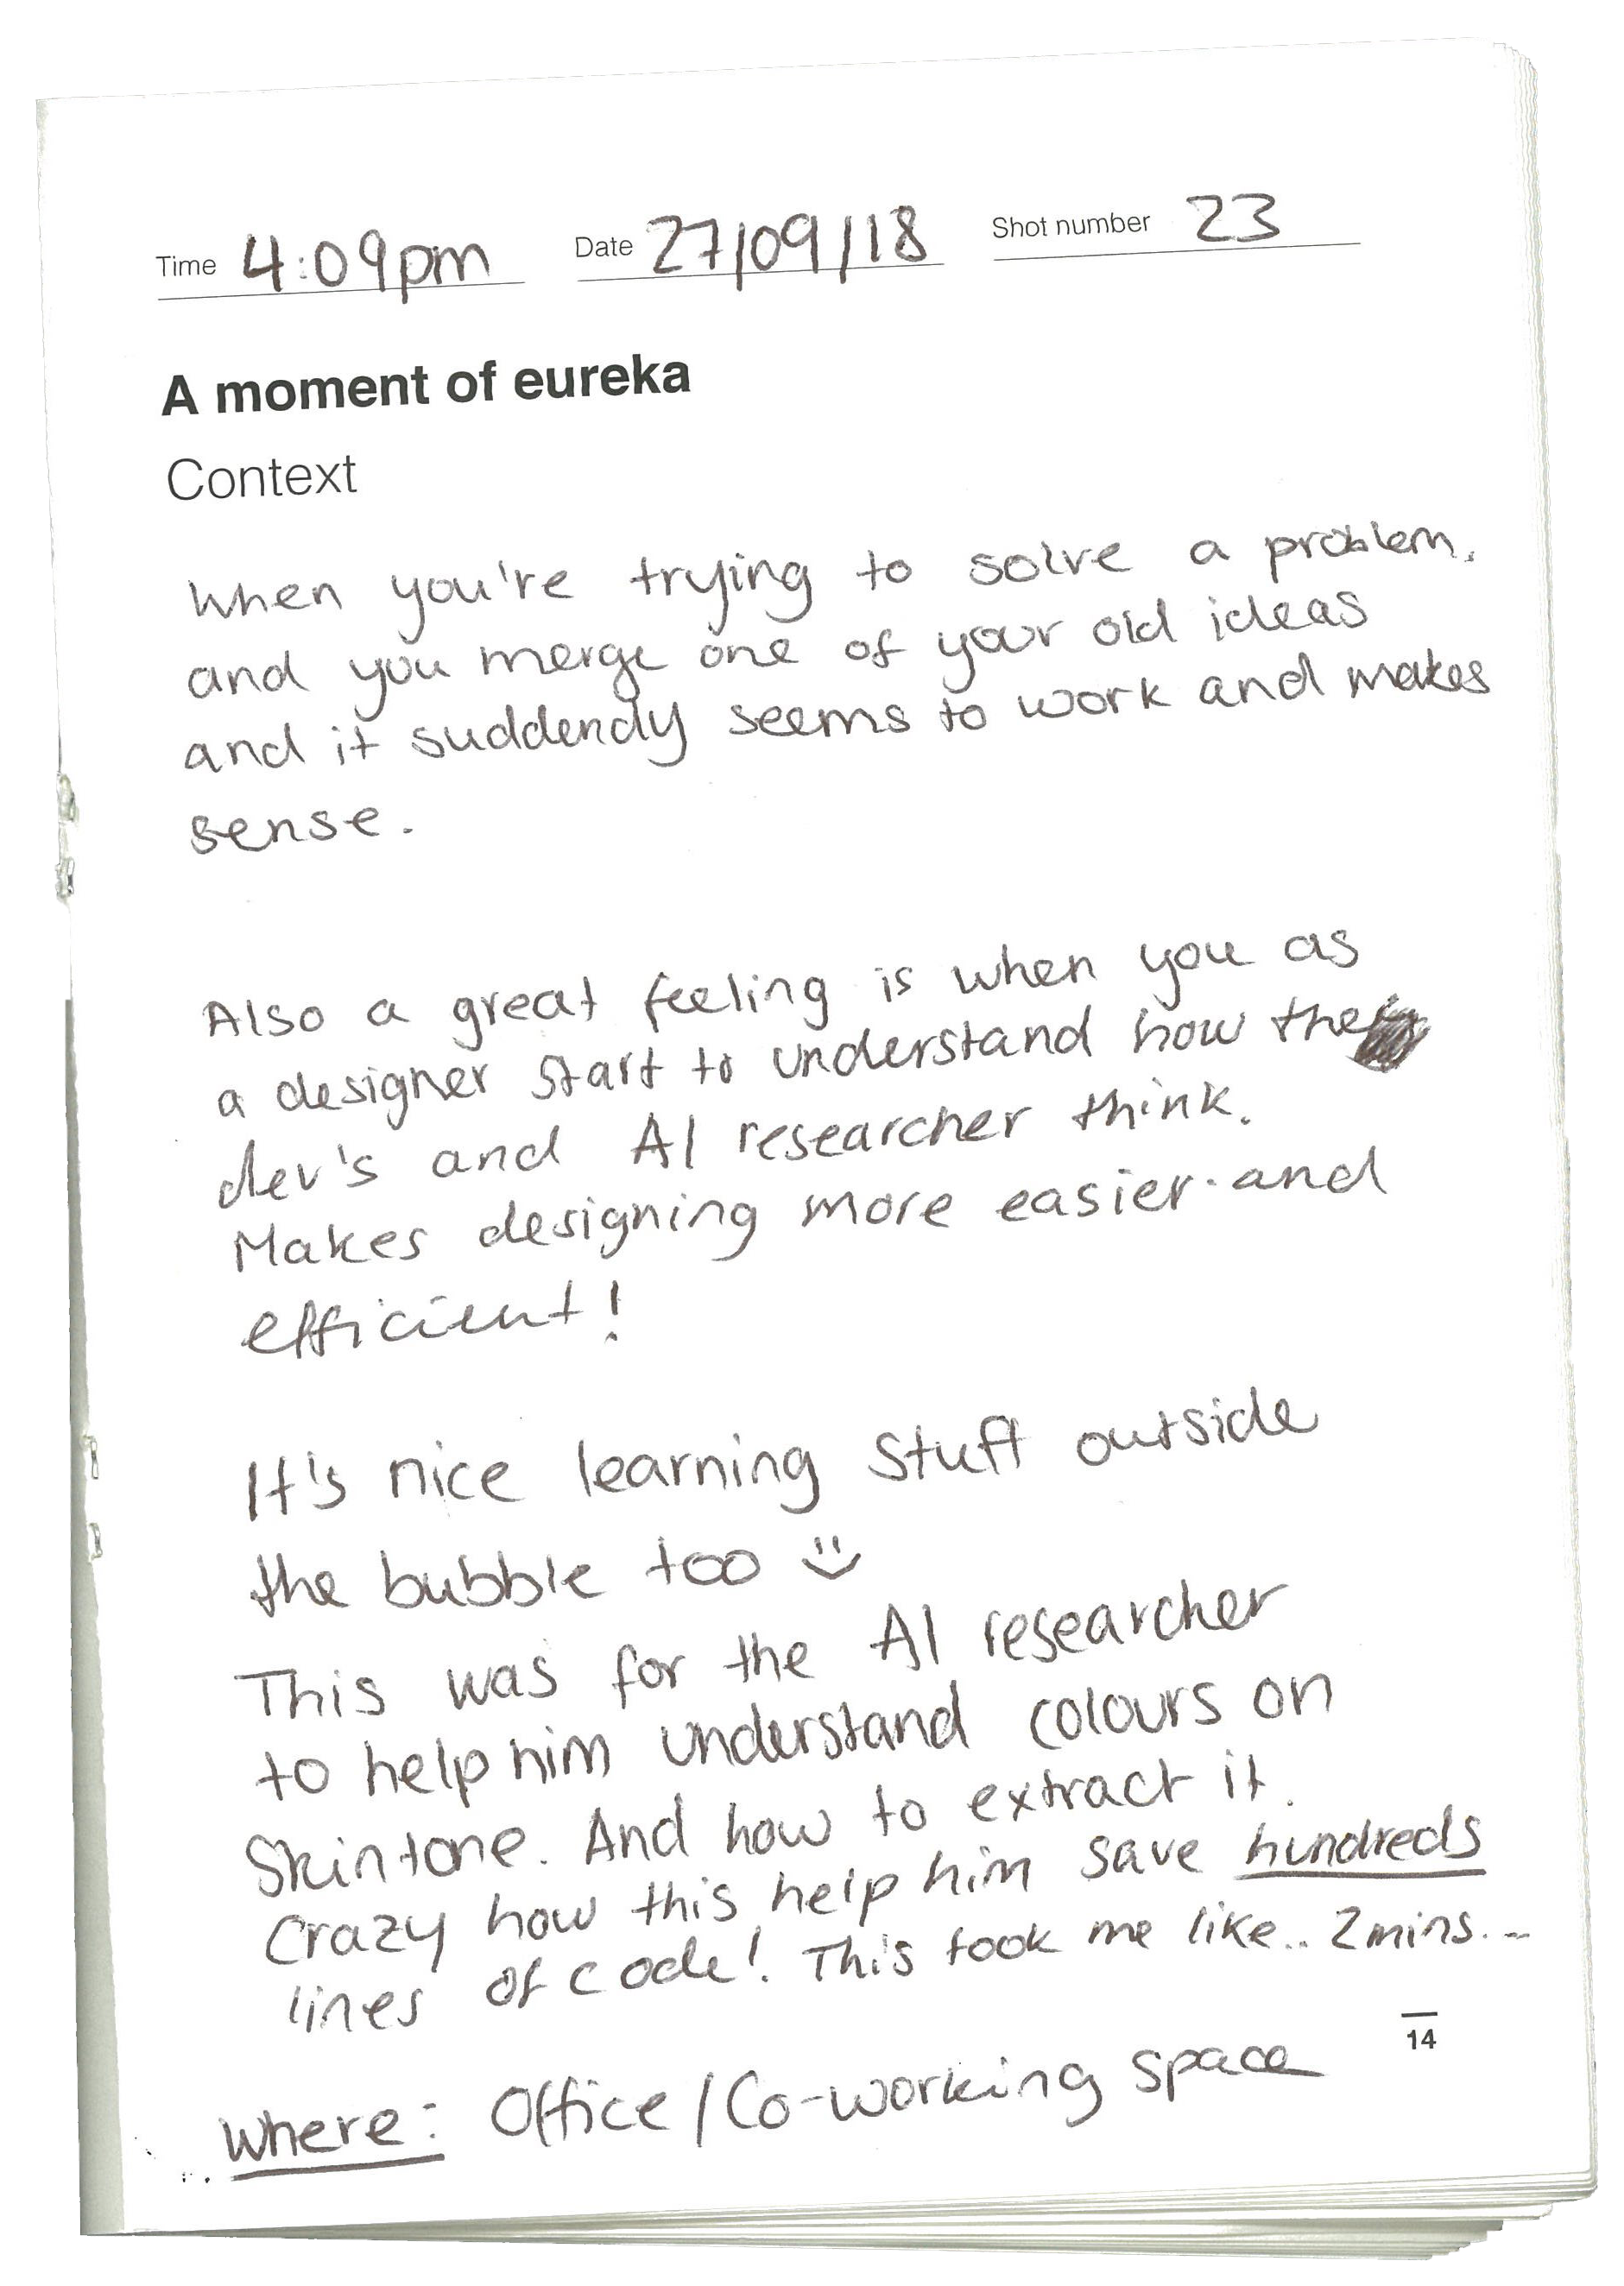 Time 4:09pm Date 27/09/18 Shot number 23
A moment of eureka
Context
When you're trying to solve a problem,
and you merge one of your old ideas
and it suddendly seems to work and makes
sense.
Also a great feeling is when you as
a designer start to understand how the
dev's and AI researcher think.
Makes designing more easier and
efficient!
It's nice learning stuff outside
the bubble too :)
This was for the AI researcher
to help him understand colours on
Skintone. And how to extract it.
Crazy how this help him save hundreds
lines of code! This took me like.. 2mins...
14
Where: Office/Co-working space